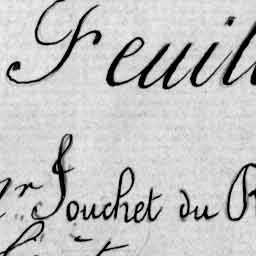 Feuill
Mr Fouchet du